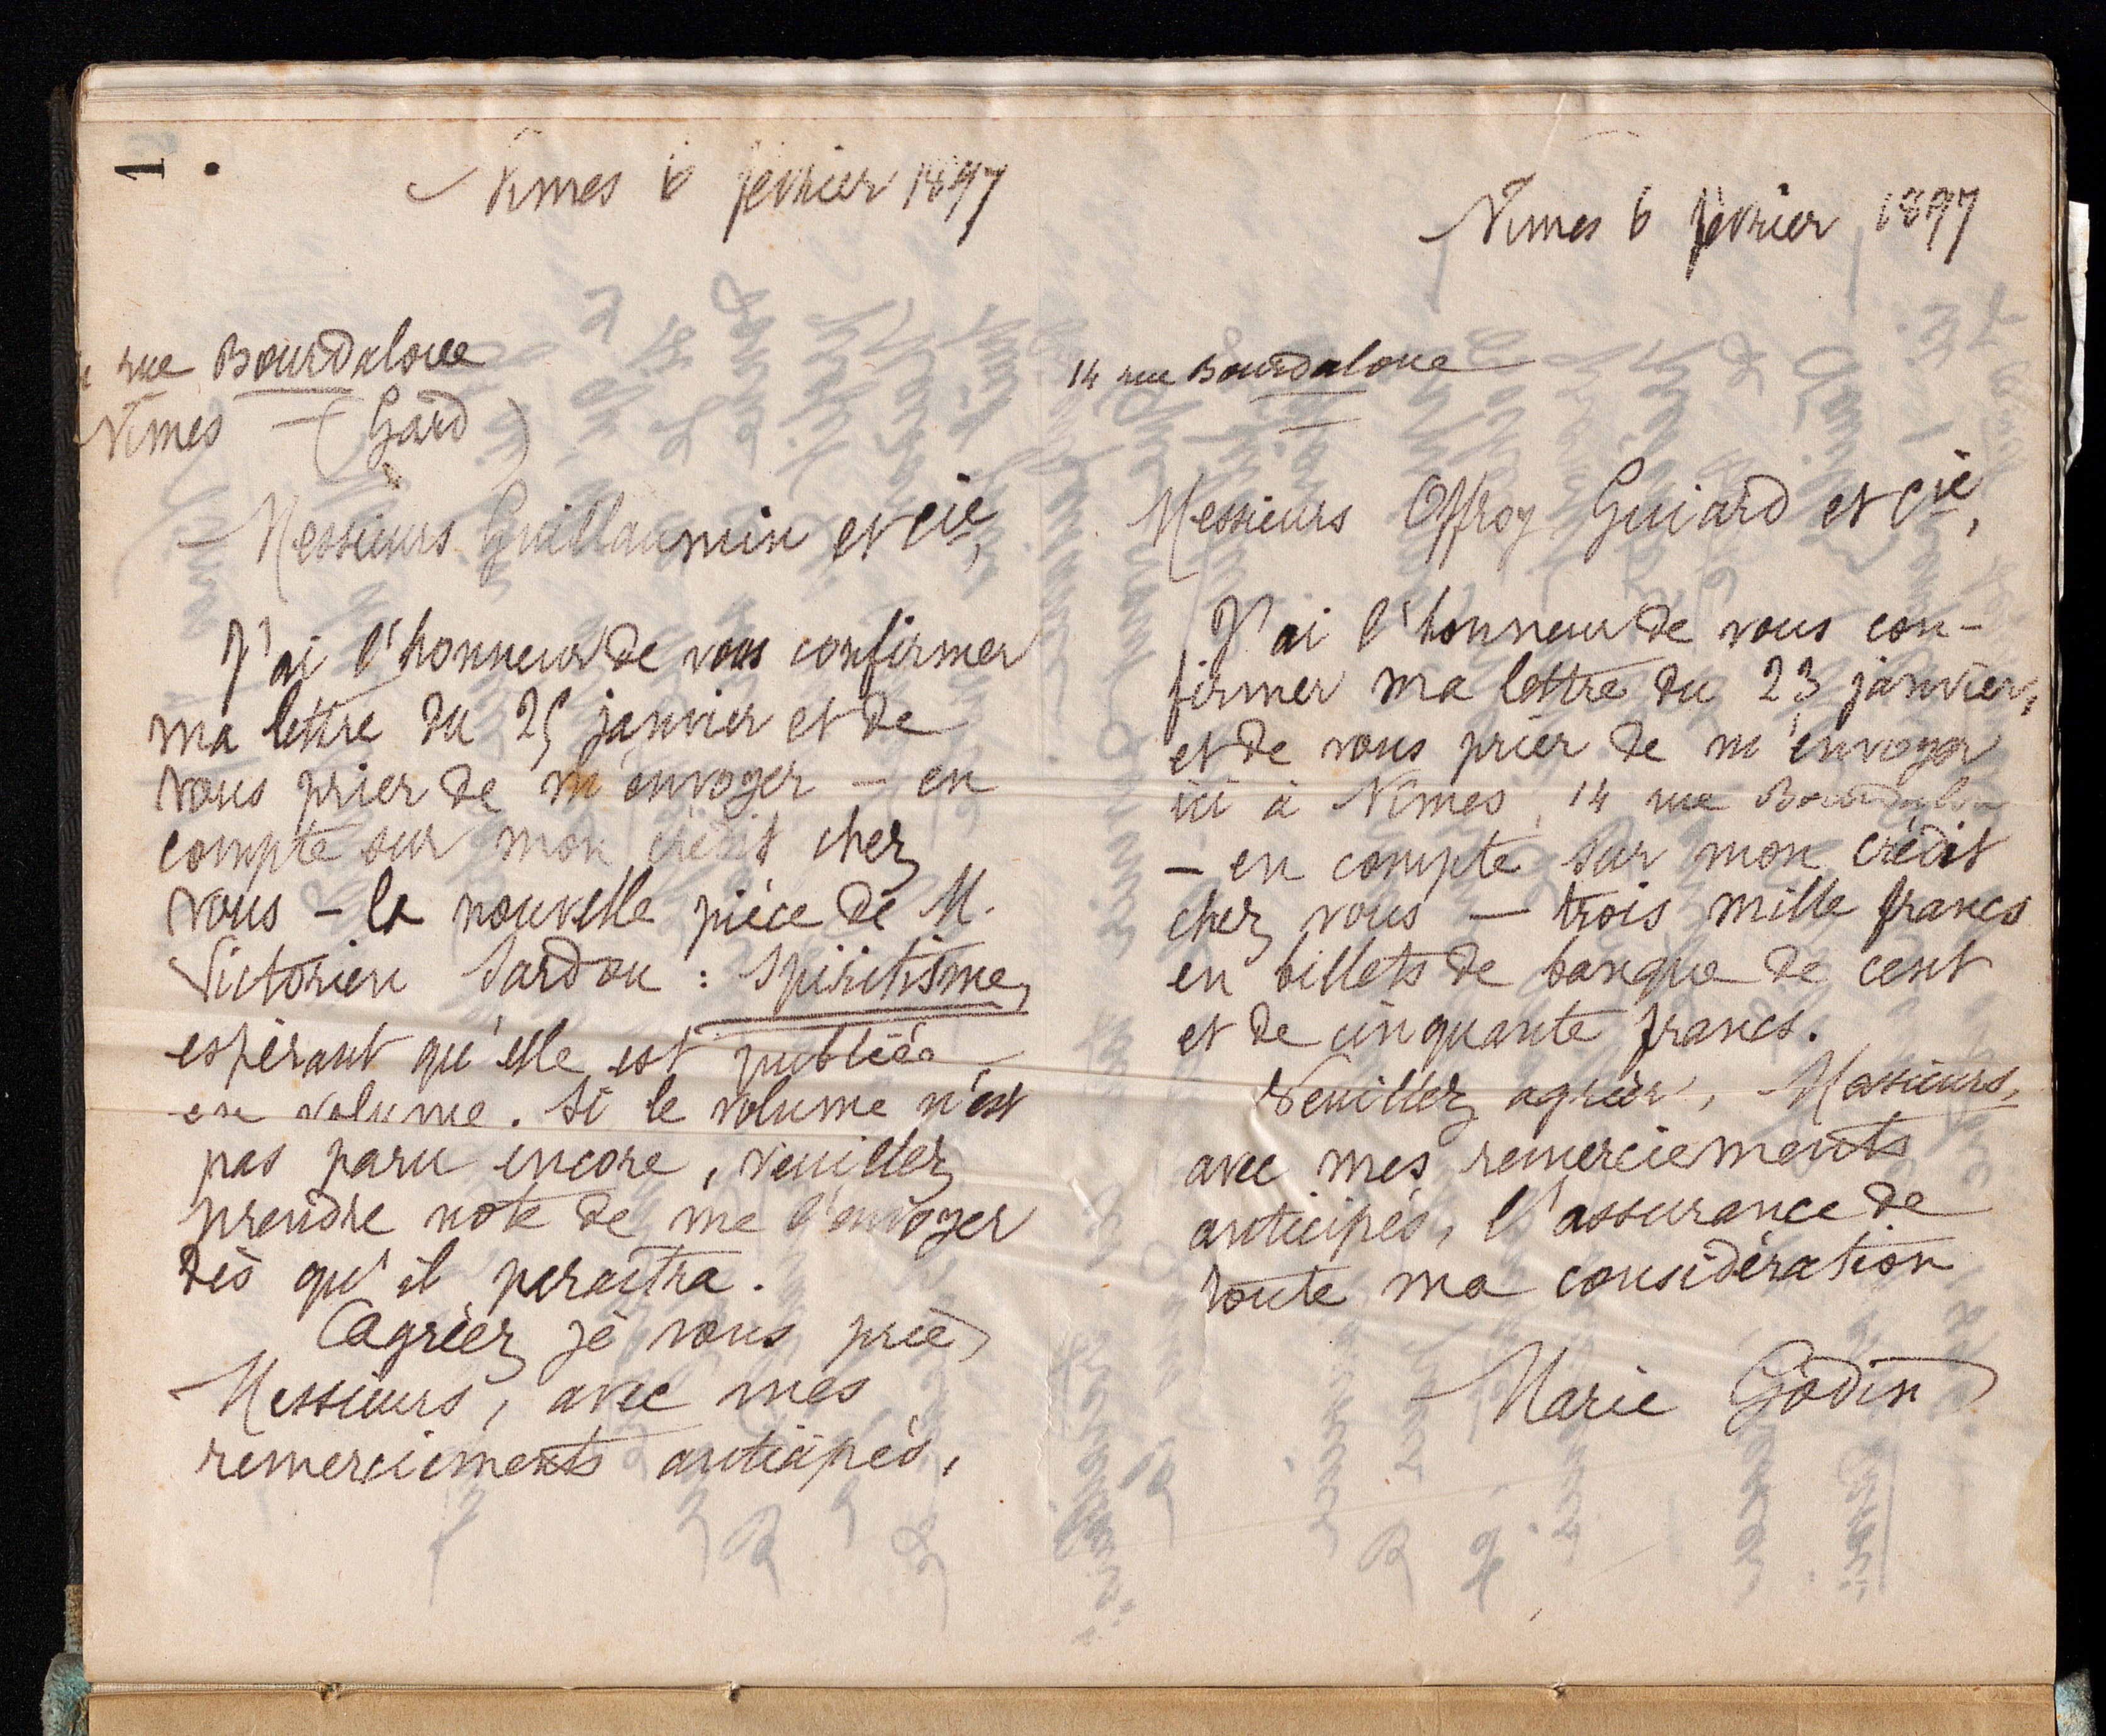 1
Nîmes 6 février 1897
rue Bourdaloue
Nîmes – (Gard)
Messieurs Guillaumin et Cie,
J'ai l'honneur de vous confirmer
ma lettre du 25 janvier et de
vous prier de m'envoyer – en
compte sur mon crédit chez
vous – la nouvelle pièce de M.
Victorien Sardou : Spiritisme,
espérant qu'elle est publiée
en volume. Si le volume n'est
pas paru encore, veuillez
prendre note de me l'envoyer
dès qu'il paraîtra.
Agréez je vous prie
Messieurs, avec mes
remerciements anticipés,
Nîmes 6 février 1897
14 rue Bourdaloue
Messieurs Offroy Guiard et Cie,
J'ai l'honneur de vous con-
firmer ma lettre du 23 janvier,
et de vous prier de m'envoyer
ici à Nîmes, 14 rue Bourdaloue
– en compte sur mon crédit
chez vous – trois mille francs
en billets de banque de cent
et de cinquante francs.
Veuillez agréer, Messieurs,
avec mes remerciements
anticipés, l'assurance de
toute ma considération
Marie Godin